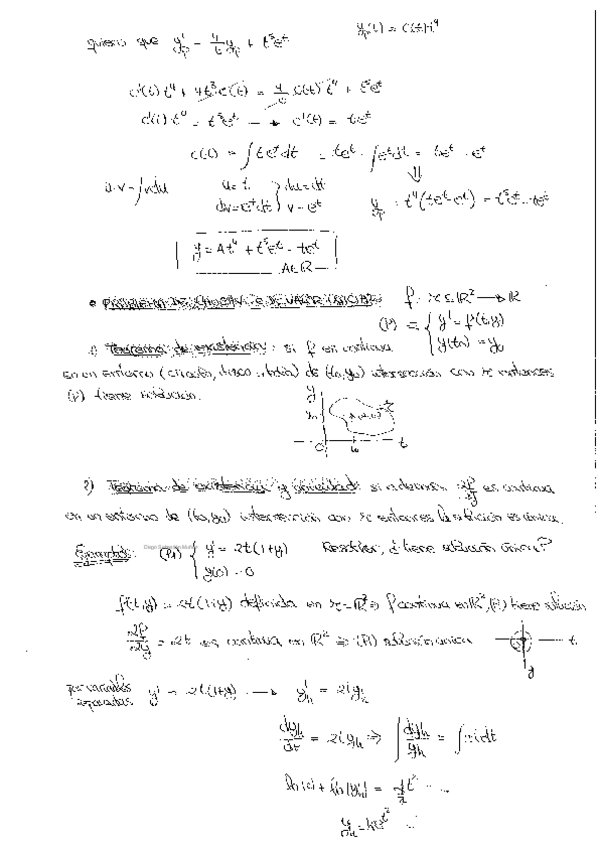 y_p(t) = C(t)·t⁴
quiero que y'_p = 4/t y_p + t⁵eᵗ
c'(t) t⁴ + 4t³c(t) = 4/t c(t) t⁴ + t⁵eᵗ
c'(t) t⁴ = t⁵eᵗ → c'(t) = teᵗ
c(t) = ∫ teᵗ dt = teᵗ - ∫ eᵗdt = teᵗ - eᵗ
u·v - ∫vdu u = t dv = eᵗdt } du = dt v = eᵗ
⇓
y_p = t⁴(teᵗ - eᵗ) = t⁵eᵗ -
y = At⁴ + t⁵eᵗ -
A∈ℝ
DE VALOR INICIAL: f: ⊆ ℝ² → ℝ
(P) = { y' = f(t,y)
y(t₀) = y₀
1) Teorema de existencia: si f es continua
en un entorno (disco) de (t₀,y₀) intersección con entonces
(P) tiene solución.
y
y₀
0 t₀ t
2) Teorema de existencia y unicidad: si además ∂f/∂y es continua
en un entorno de (t₀,y₀) intersección con entonces la solución es única.
Ejemplo: (P₁) { y' = 2t(1+y) Resolver, ¿tiene solución única?
y(0) = 0
f(t,y) = 2t(1+y) definida en = ℝ² ⇒ f continua en ℝ², (P₁) tiene solución
∂f/∂y = 2t es continua en ℝ² ⇒ (P₁) solución única
t
y
por variables separadas y' = 2t(1+y) → y'_h = 2ty_h
dy_h/dt = 2ty_h ⇒ ∫ dy_h/y_h = ∫ 2tdt